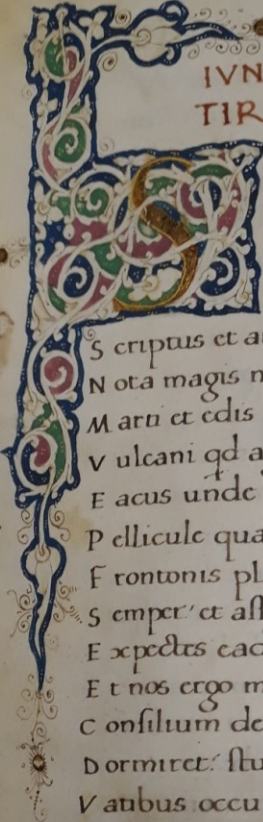 IVN
TIR
S
S criptus et a
N ota magis n
M arti et edis
V ulcani qd a
E acus unde
P ellicule qua
F rontonis pl
S emper et ass
E xpectes ead
E t nos ergo m
C onsilium de
D ormiret stu
V atibus occu